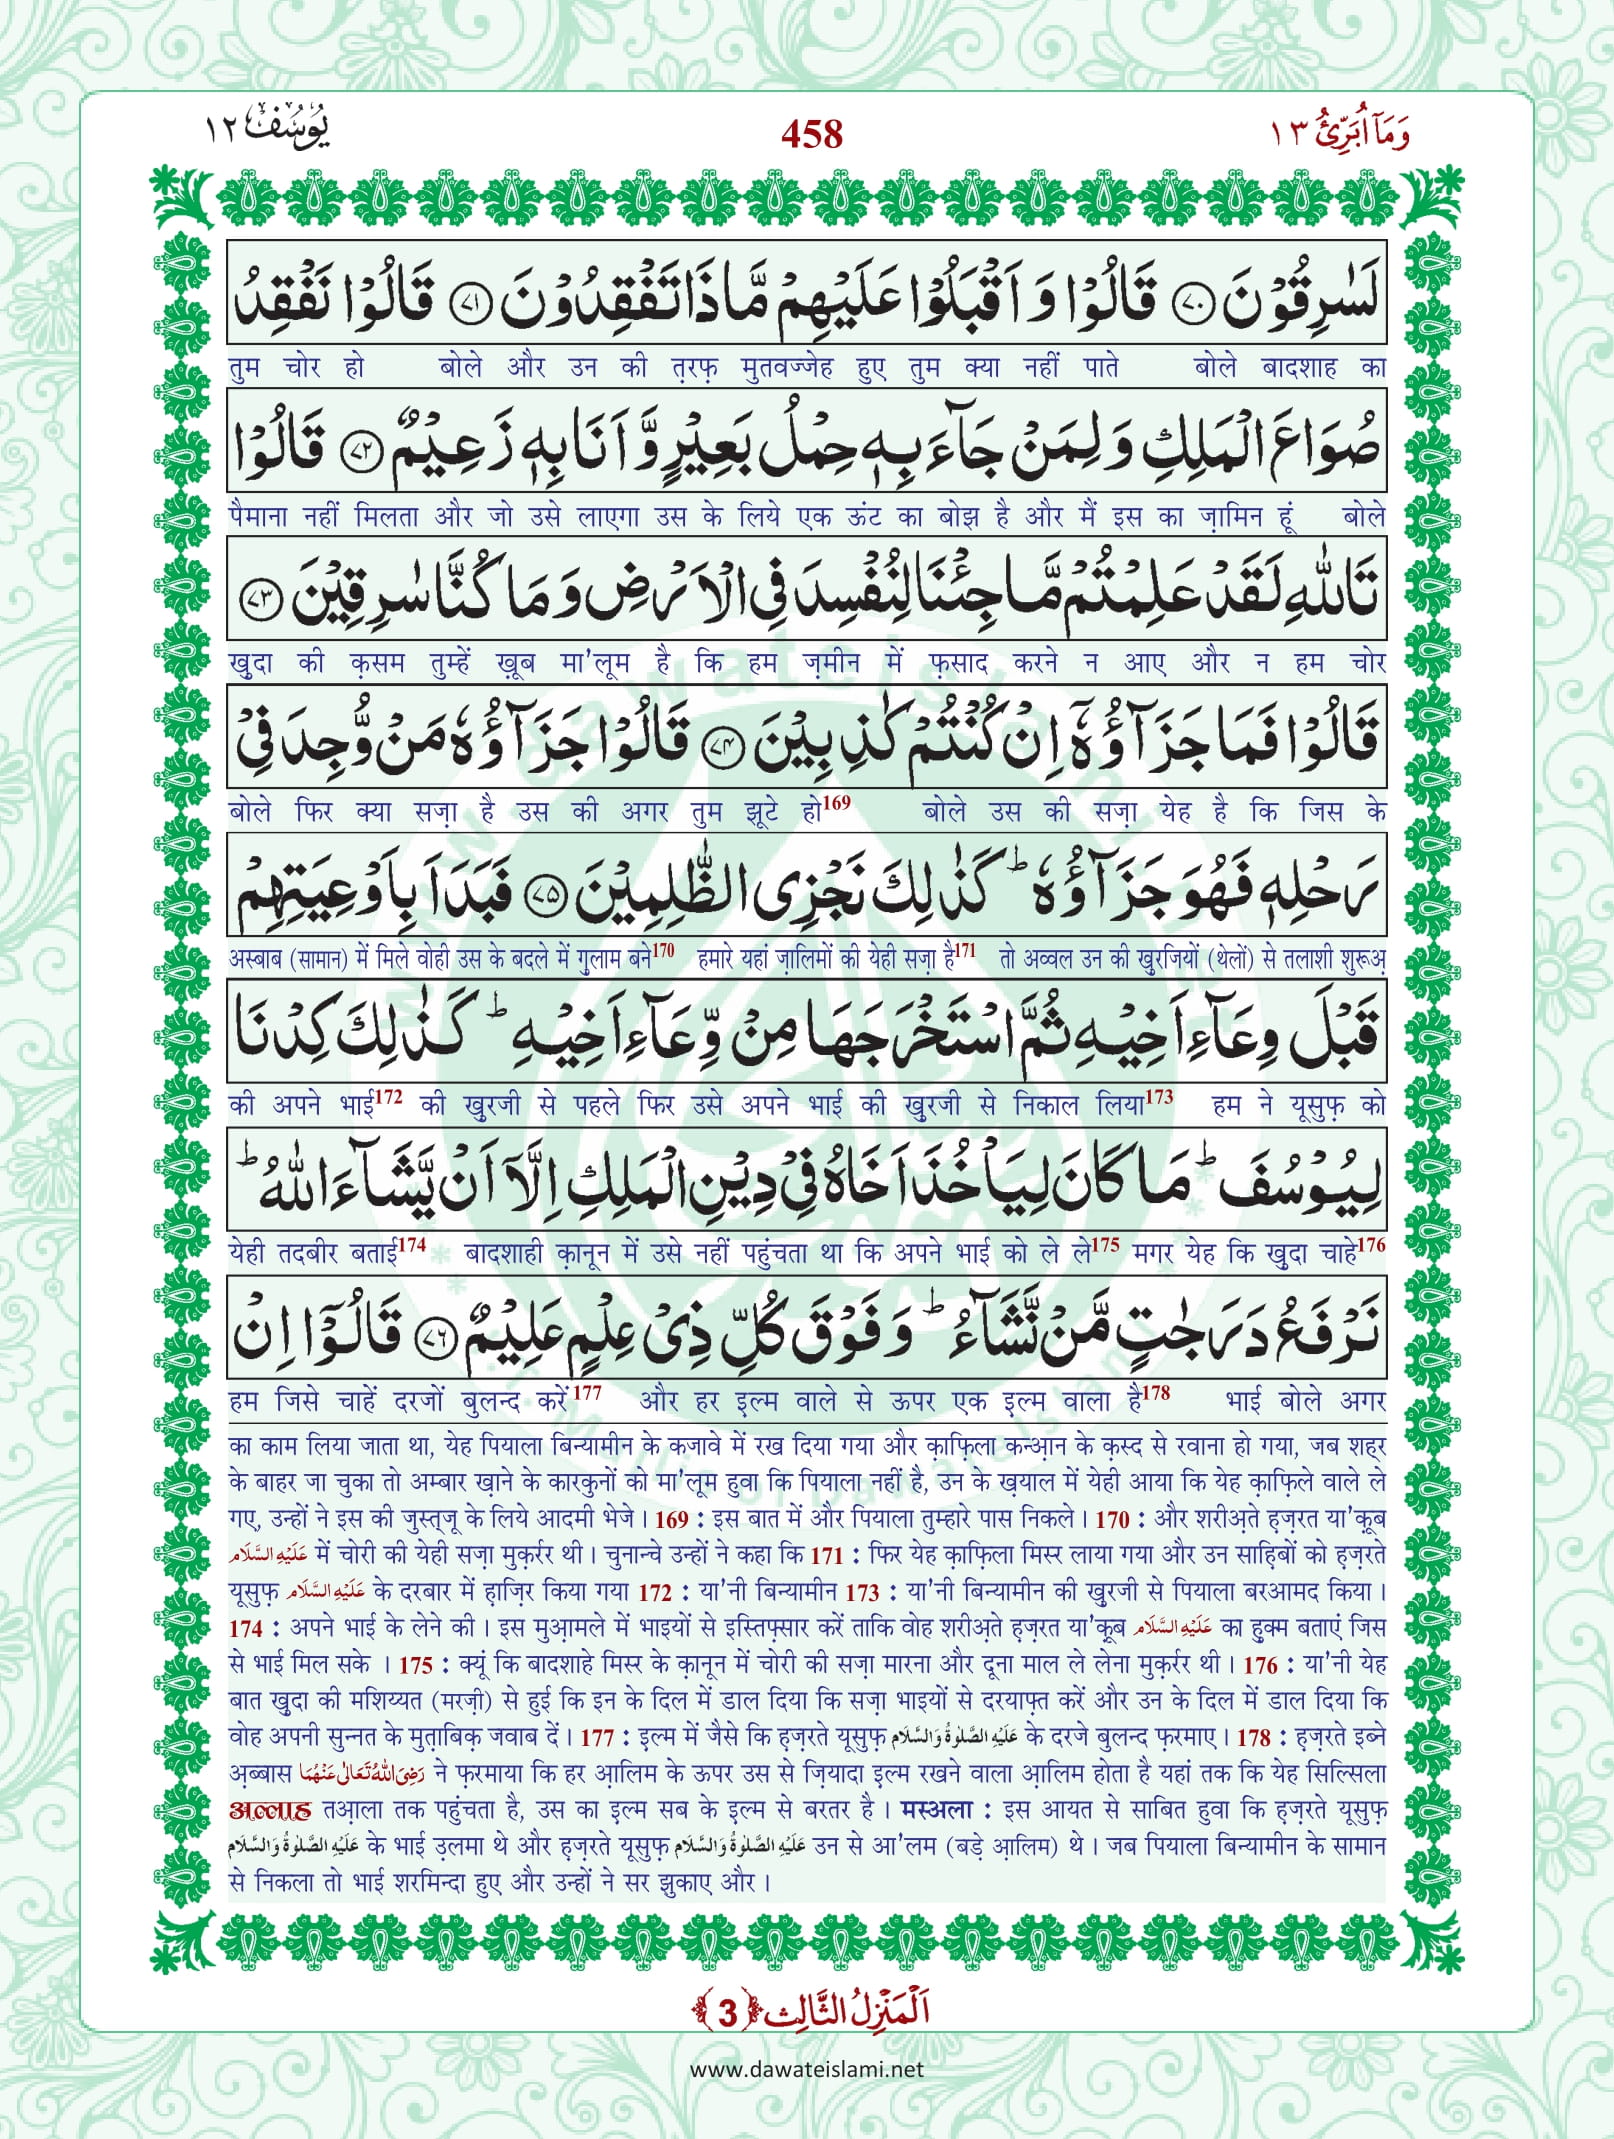 يُوْسُف ١٢
458
وَمَآ اُبَرِّئُ ١٣
لَسٰرِقُوْنَ ﴿٧٠﴾ قَالُوْا وَ اَقْبَلُوْا عَلَیْهِمْ مَّا ذَا تَفْقِدُوْنَ ﴿٧١﴾ قَالُوْا نَفْقِدُ
तुम चोर हो बोले और उन की त़रफ़ मुतवज्जेह हुए तुम क्या नहीं पाते बोले बादशाह का
صُوَاعَ الْمَلِكِ وَ لِمَنْ جَآءَ بِهٖ حِمْلُ بَعِیْرٍ وَّ اَنَا بِهٖ زَعِیْمٌ ﴿٧٢﴾ قَالُوْا
पैमाना नहीं मिलता और जो उसे लाएगा उस के लिये एक ऊंट का बोझ है और मैं इस का ज़ामिन हूं बोले
تَاللّٰهِ لَقَدْ عَلِمْتُمْ مَّا جِئْنَا لِنُفْسِدَ فِی الْاَرْضِ وَ مَا كُنَّا سٰرِقِیْنَ ﴿٧٣﴾
ख़ुदा की क़सम तुम्हें ख़ूब मा'लूम है कि हम ज़मीन में फ़साद करने न आए और न हम चोर
قَالُوْا فَمَا جَزَآؤُهٗۤ اِنْ كُنْتُمْ كٰذِبِیْنَ ﴿٧٤﴾ قَالُوْا جَزَآؤُهٗ مَنْ وُّجِدَ فِیْ
बोले फिर क्या सज़ा है उस की अगर तुम झूटे हो169 बोले उस की सज़ा येह है कि जिस के
رَحْلِهٖ فَهُوَ جَزَآؤُهٗ ؕ كَذٰلِكَ نَجْزِی الظّٰلِمِیْنَ ﴿٧٥﴾ فَبَدَاَ بِاَوْعِیَتِهِمْ
अस्बाब (सामान) में मिले वोही उस के बदले में गुलाम बने170 हमारे यहां ज़ालिमों की येही सज़ा है171 तो अव्वल उन की खुरजियों (थेलों) से तलाशी शुरूअ़
قَبْلَ وِعَآءِ اَخِیْهِ ثُمَّ اسْتَخْرَجَهَا مِنْ وِّعَآءِ اَخِیْهِ ؕ كَذٰلِكَ كِدْنَا
की अपने भाई172 की खुरजी से पहले फिर उसे अपने भाई की खुरजी से निकाल लिया173 हम ने यूसुफ़ को
لِیُوْسُفَ ؕ مَا كَانَ لِیَاْخُذَ اَخَاهُ فِیْ دِیْنِ الْمَلِكِ اِلَّاۤ اَنْ یَّشَآءَ اللّٰهُ ؕ
येही तदबीर बताई174 बादशाही क़ानून में उसे नहीं पहुंचता था कि अपने भाई को ले ले175 मगर येह कि ख़ुदा चाहे176
نَرْفَعُ دَرَجٰتٍ مَّنْ نَّشَآءُ ؕ وَ فَوْقَ كُلِّ ذِیْ عِلْمٍ عَلِیْمٌ ﴿٧٦﴾ قَالُوْۤا اِنْ
हम जिसे चाहें दरजों बुलन्द करें177 और हर इल्म वाले से ऊपर एक इल्म वाला है178 भाई बोले अगर
का काम लिया जाता था, येह पियाला बिन्यामीन के कजावे में रख दिया गया और क़ाफ़िला कन्आ़न के क़स्द से रवाना हो गया, जब शहर
के बाहर जा चुका तो अम्बार ख़ाने के कारकुनों को मा'लूम हुवा कि पियाला नहीं है, उन के ख़याल में येही आया कि येह क़ाफ़िले वाले ले
गए, उन्हों ने इस की जुस्त्जू के लिये आदमी भेजे। 169 : इस बात में और पियाला तुम्हारे पास निकले। 170 : और शरीअ़ते हज़रत या'क़ूब
عَلَيْهِ السَّلَام में चोरी की येही सज़ा मुक़र्रर थी। चुनान्चे उन्हों ने कहा कि 171 : फिर येह क़ाफ़िला मिस्र लाया गया और उन साह़िबों को ह़ज़रते
यूसुफ़ عَلَيْهِ السَّلَام के दरबार में ह़ाज़िर किया गया 172 : या'नी बिन्यामीन 173 : या'नी बिन्यामीन की खुरजी से पियाला बरआमद किया।
174 : अपने भाई के लेने की। इस मुआ़मले में भाइयों से इस्तिफ़्सार करें ताकि वोह शरीअ़ते ह़ज़रत या'क़ूब عَلَيْهِ السَّلَام का हुक्म बताएं जिस
से भाई मिल सके । 175 : क्यूं कि बादशाहे मिस्र के क़ानून में चोरी की सज़ा मारना और दूना माल ले लेना मुक़र्रर थी। 176 : या'नी येह
बात ख़ुदा की मशिय्यत (मरज़ी) से हुई कि इन के दिल में डाल दिया कि सज़ा भाइयों से दरयाफ़्त करें और उन के दिल में डाल दिया कि
वोह अपनी सुन्नत के मुत़ाबिक़ जवाब दें। 177 : इल्म में जैसे कि ह़ज़रते यूसुफ़ عَلَيْهِ الصَّلٰوةُ وَالسَّلَام के दरजे बुलन्द फ़रमाए। 178 : ह़ज़रते इब्ने
अ़ब्बास رَضِىَ اللّٰهُ تَعَالٰى عَنْهُمَا ने फ़रमाया कि हर आ़लिम के ऊपर उस से ज़ियादा इल्म रखने वाला आ़लिम होता है यहां तक कि येह सिल्सिला
अल्लाह तआ़ला तक पहुंचता है, उस का इल्म सब के इल्म से बरतर है। मस्अला : इस आयत से साबित हुवा कि ह़ज़रते यूसुफ़
عَلَيْهِ الصَّلٰوةُ وَالسَّلَام के भाई उ़लमा थे और ह़ज़रते यूसुफ़ عَلَيْهِ الصَّلٰوةُ وَالسَّلَام उन से आ'लम (बड़े आ़लिम) थे। जब पियाला बिन्यामीन के सामान
से निकला तो भाई शरमिन्दा हुए और उन्हों ने सर झुकाए और।
اَلْمَنْزِلُ الثَّالِث ﴿3﴾
www.dawateislami.net